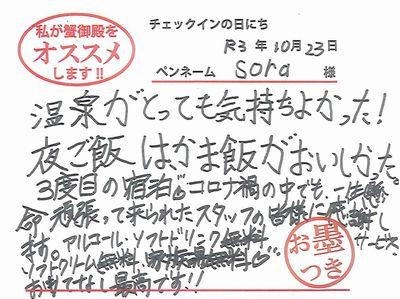 私が蟹御殿を
オススメ
します!!
チェックインの日にち
R3年10月23日
ペンネーム sora 様
温泉がとっても気持ちよかった!
夜ご飯は、かま飯がおいしかった。
3度目の宿泊 コロナ禍の中でも、一生懸
命 頑張って来られたスタッフの皆様に感謝し
ます。アルコール、ソフトドリンク無料 サービス、
ソフトクリーム無料
おもてなし最高です!!
お墨
つき